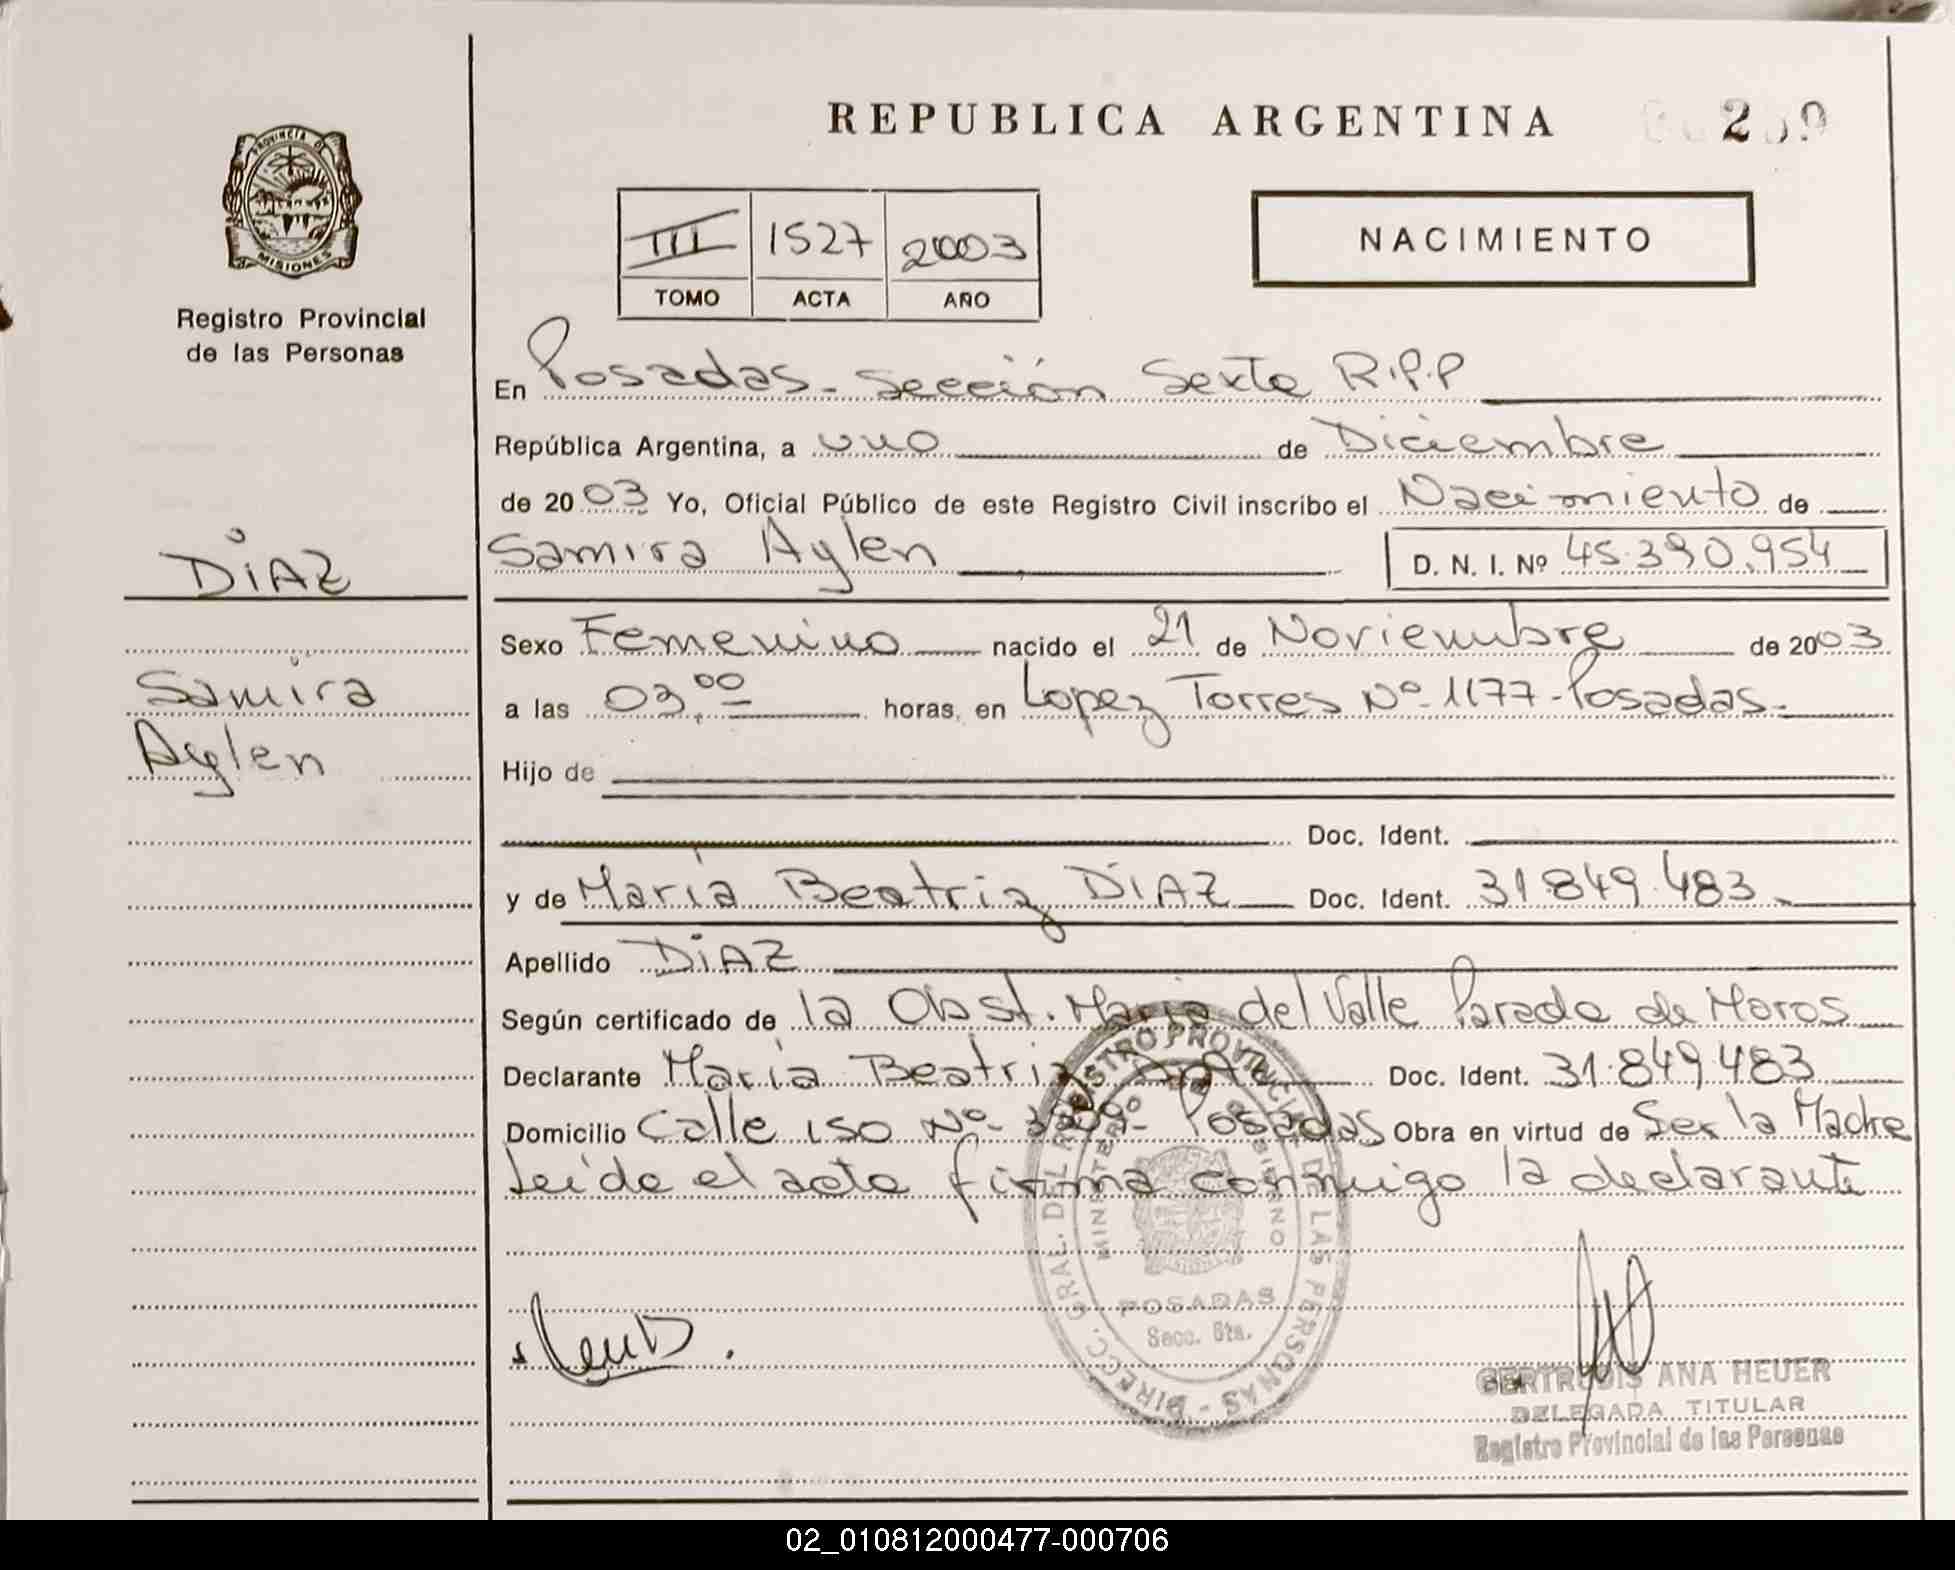 REPUBLICA ARGENTINA
PROVINCIA D
MISIONES
Registro Provincial
de las Personas
III 1527 2003
TOMO ACTA AÑO
NACIMIENTO
En Posadas - Sección Sexta R.P.P
República Argentina, a uno de Diciembre
de 2003 Yo, Oficial Público de este Registro Civil inscribo el Nacimiento de
DIAZ
Samira Aylen D. N. I. Nº 45.390.954
Sexo Femenino nacido el 21 de Noviembre de 2003
Samira
a las 03,00 horas, en Lopez Torres Nº 1177 - Posadas -
Aylen
Hijo de
Doc. Ident.
y de María Beatriz DIAZ Doc. Ident. 31.849.483.
Apellido DIAZ
Según certificado de la Obst. Maria del Valle Parada de Moros
Declarante María Beatriz Doc. Ident. 31.849.483
Domicilio Calle 150 Nº Posadas Obra en virtud de Ser la Madre
Leída el acta firma conmigo la declarante
DIRECC. GRAL. DEL REGISTRO PROVINCIAL DE LAS PERSONAS -
POSADAS
Secc. 6ta.
GERTRUDIS ANA HEUER
DELEGADA TITULAR
Registro Provincial de las Personas
02_010812000477-000706